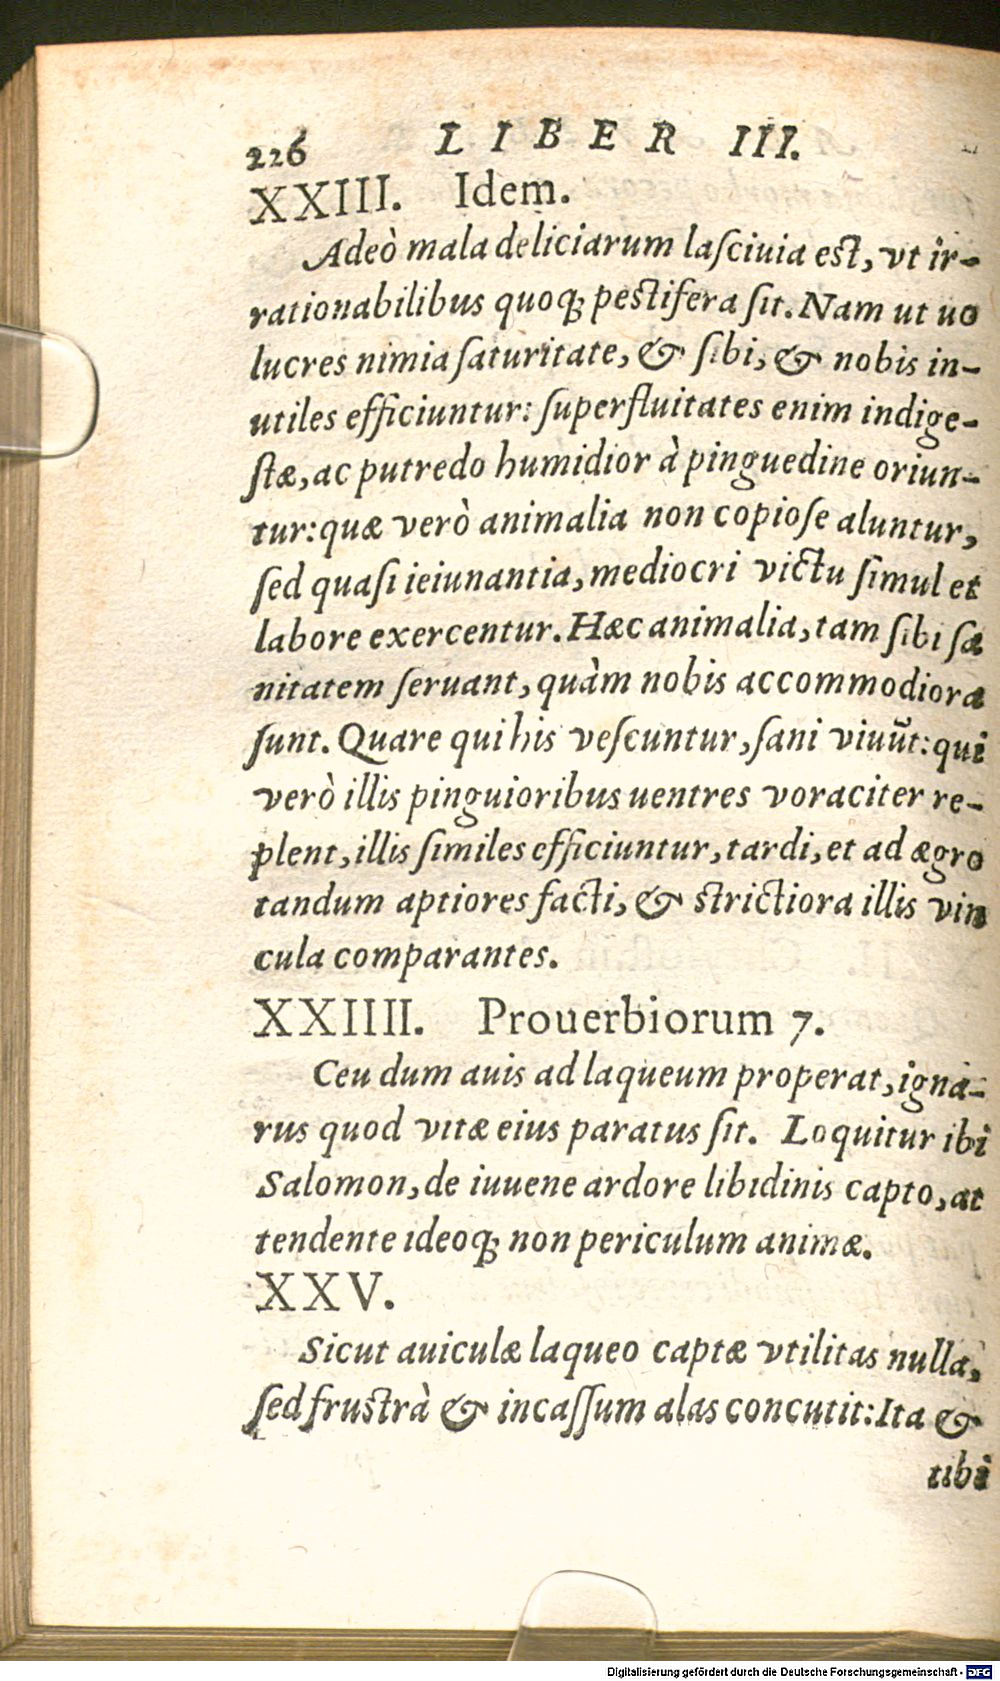 226 LIBER III.
XXIII. Idem.
Adeò mala deliciarum lasciuia est, vt ir-
rationabilibus quoqꝫ pestifera sit. Nam ut uo
lucres nimia saturitate, & sibi, & nobis in-
utiles efficiuntur: superfluitates enim indige-
stæ, ac putredo humidior à pinguedine oriun-
tur: quæ verò animalia non copiose aluntur,
sed quasi ieiunantia, mediocri victu simul et
labore exercentur. Hæc animalia, tam sibi sa
nitatem seruant, quàm nobis accommodiora
sunt. Quare qui his vescuntur, sani viuũt: qui
verò illis pinguioribus uentres voraciter re-
plent, illis similes efficiuntur, tardi, et ad ægro
tandum aptiores facti, & strictiora illis vin
cula comparantes.
XXIIII. Prouerbiorum 7.
Ceu dum auis ad laqueum properat, igna-
rus quod vitæ eius paratus sit. Loquitur ibi
Salomon, de iuuene ardore libidinis capto, at
tendente ideoqꝫ non periculum animæ.
XXV.
Sicut auiculæ laqueo captæ vtilitas nulla,
sed frustrà & incassum alas concutit: Ita &
tibi
Digitalisierung gefördert durch die Deutsche Forschungsgemeinschaft - DFG